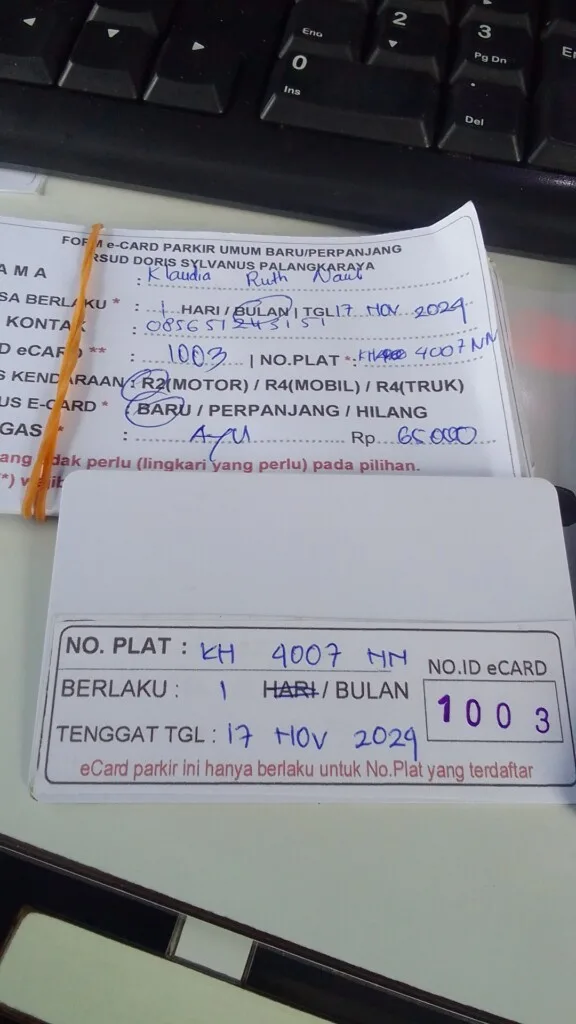 Eno
2
3
Pg Dn
0
Ins
.
Del
FORM e-CARD PARKIR UMUM BARU/PERPANJANG
RSUD DORIS SYLVANUS PALANGKARAYA
AMA : Klaudia Ruth
SA BERLAKU * : 1 HARI / BULAN | TGL 17 NOV 2024
KONTAK :
D eCARD ** : 1003 | NO.PLAT *: KH 4007 NN
S KENDARAAN : R2(MOTOR) / R4(MOBIL) / R4(TRUK)
US E-CARD * : BARU / PERPANJANG / HILANG
GAS * : AYU Rp 65.000
ang tidak perlu (lingkari yang perlu) pada pilihan.
*) wajib
NO. PLAT : KH 4007 NN
NO.ID eCARD
BERLAKU : 1 HARI / BULAN
1003
TENGGAT TGL : 17 NOV 2024
eCard parkir ini hanya berlaku untuk No.Plat yang terdaftar